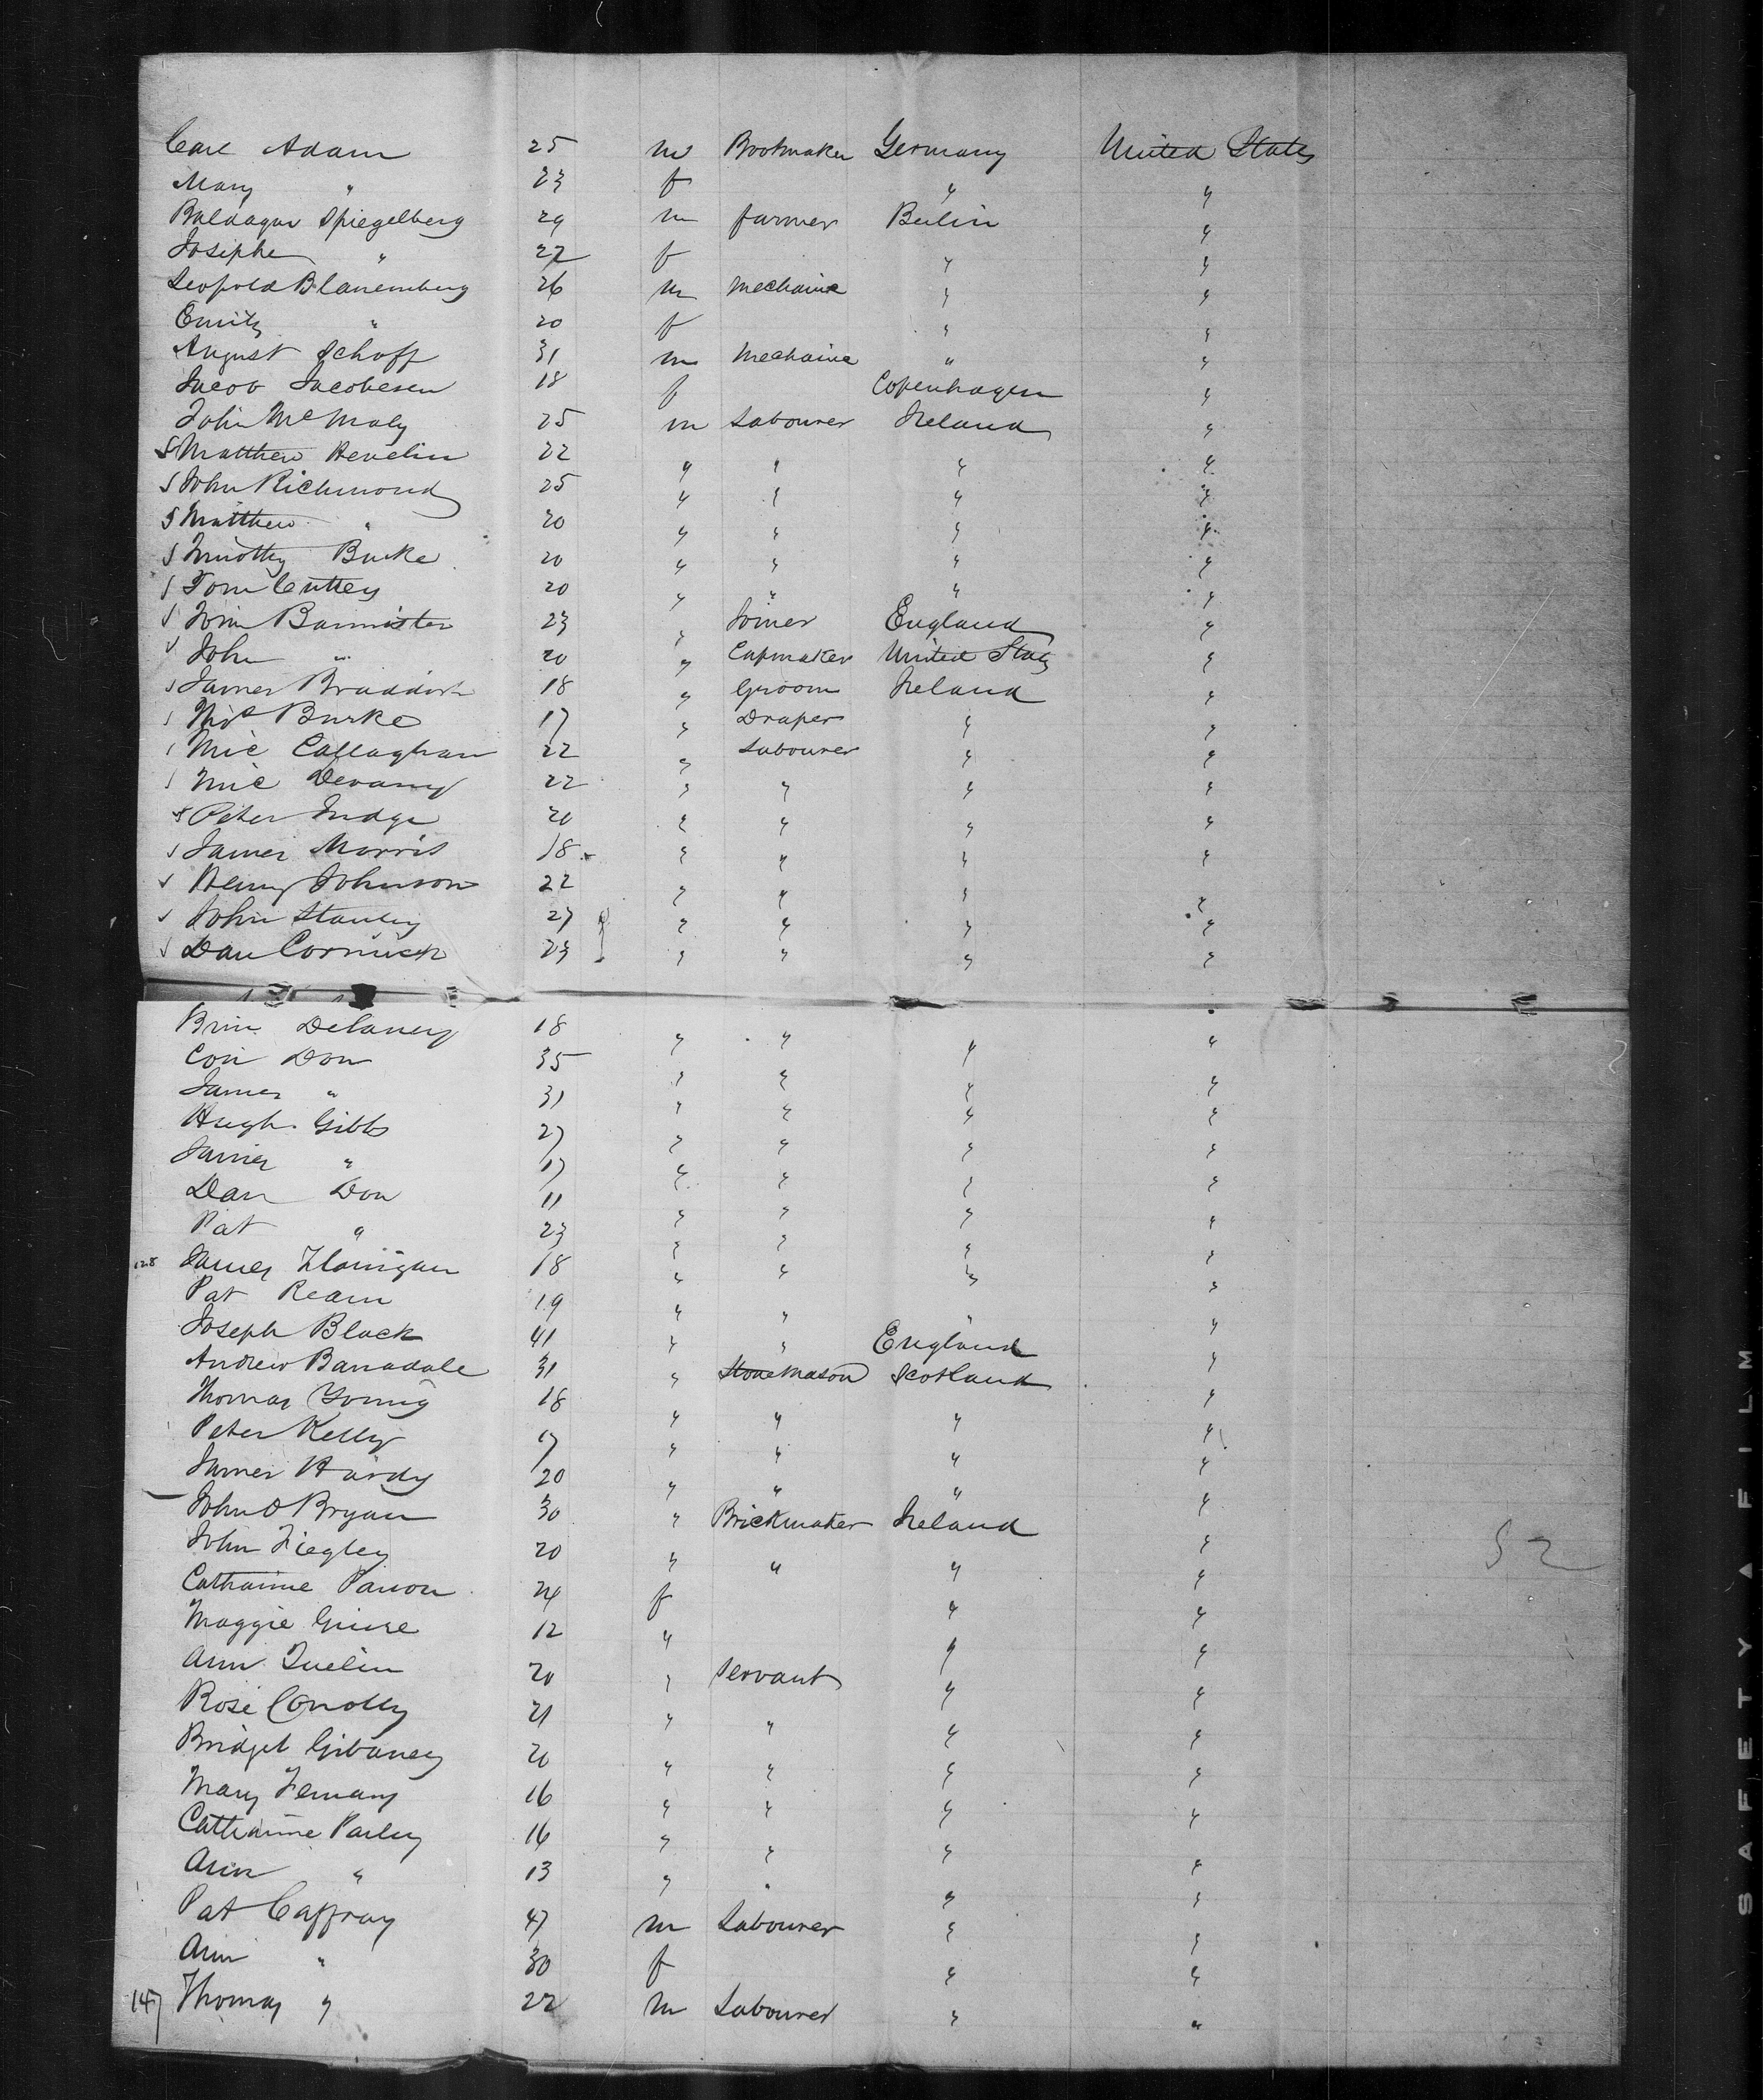 Carl Adam 25 m Bootmaker Germany United States
Mary " 23 f " "
Baldagar Spiegelberg 29 m farmer Berlin "
Josephe " 22 f " "
Leopold Blanemberg 26 m Mechanic " "
Emily " 20 f " "
August Schoff 31 m Mechanic " "
Jacob Jacobesen 18 f Copenhagen "
John McMaly 25 m Labourer Ireland "
S Matthew Hevelin 22 " " " "
S John Richmond 25 " " " "
S Matthew " 20 " " " "
S Timothy Burke 20 " " " "
S Tom Cuttey 20 " " " "
S Tom Bannister 23 " Joiner England "
S John " 20 " Capmaker United States "
S James Braddish 18 " Groom Ireland "
S Burke 17 " Draper " "
S Mic Callaghan 22 " Labourer " "
S Mic Devany 22 " " " "
S Peter Judge 20 " " " "
S James Morris 18 " " " "
S Henry Johnson 22 " " " "
S John Stanley 27 " " " "
S Dan Cormick 23 " " " "
Brin Delaney 18 " " " "
Con Don 35 " " " "
James " 31 " " " "
Hugh Gibbs 27 " " " "
James " 17 " " " "
Dan Don 11 " " " "
Pat " 23 " " " "
128 James Flanigan 18 " " " "
Pat Ream 19 " " " "
Joseph Black 41 " " England "
Andrew Banadale 31 " Stone Mason Scotland "
Thomas Young 18 " " " "
Peter Kelly 17 " " " "
James Hardy 20 " " " "
John O Bryan 30 " Brickmaker Ireland "
John Fiegley 20 " " " "
52
Catharine Parron 24 f " "
Maggie 12 " " "
Ann Quelin 20 " Servant " "
Rose Conolly 21 " " " "
Bridget Gibaney 20 " " " "
Mary Fernany 16 " " " "
Catharine Parley 16 " " " "
Ann " 13 " " " "
Pat Caffray 47 m Labourer " "
Ann " 30 f " "
147 Thomas " 22 m Labourer " "
SAFETY A FILM